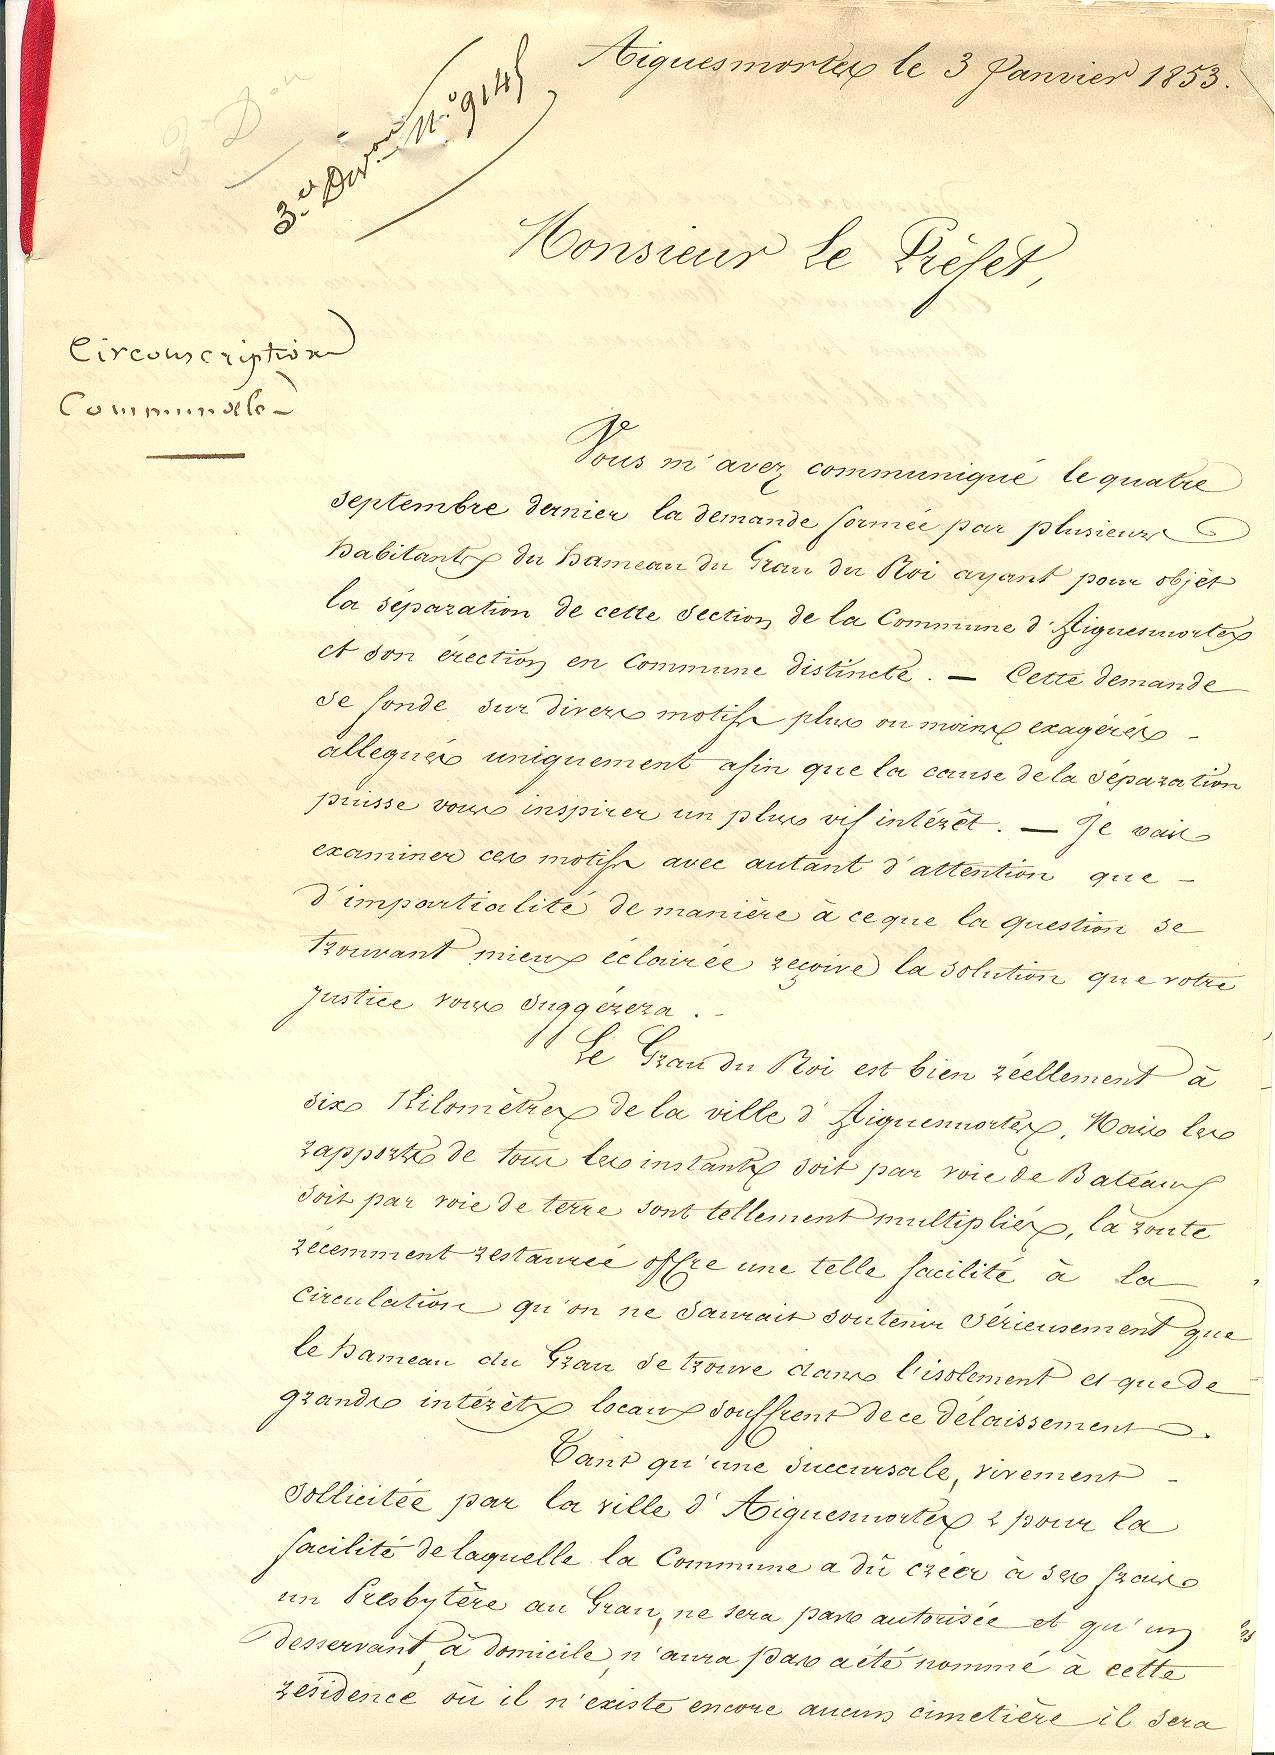 Aiguesmortes le 3 Janvier 1853.
3e Don
3e Divon N.o 9145
Monsieur Le Préfet,
Circonscription
Communale
Vous m'avez communiqué le quatre
septembre dernier la demande formée par plusieurs
habitants du hameau du Grau du Roi ayant pour objèt
la séparation de cette section de la Commune d'Aiguesmortes
et son érection en Commune distincte. — Cette demande
se fonde sur divers motifs plus ou moins exagérés -
allegués uniquement afin que la cause de la séparation
puisse vous inspirer un plus vif intérêt. — Je vais
examiner ces motifs avec autant d'attention que -
d'impartialité de manière à ce que la question se
trouvant mieux éclairée reçoive la solution que votre
justice vous suggérera. -
Le Grau du Roi est bien réellement à
six Kilomètres de la ville d'Aiguesmortes. Mais les
rapports de tous les instants soit par voie de Bateaux
soit par voie de terre sont tellement multipliés, la route
récemment restaurée offre une telle facilité à la
circulation qu'on ne saurait soutenir sérieusement que
le hameau du Grau se trouve dans l'isolement et que de
grands intérêts locaux souffrent de ce délaissement.
Tant qu'une succursale, vivement -
sollicitée par la ville d'Aiguesmortes & pour la
facilité de laquelle la Commune a dû créer à ses frais
un Presbytère au Grau, ne sera pas autorisée et qu'un
desservant, à domicile, n'aura pas été nommé à cette
résidence où il n'existe encore aucun cimetière il sera